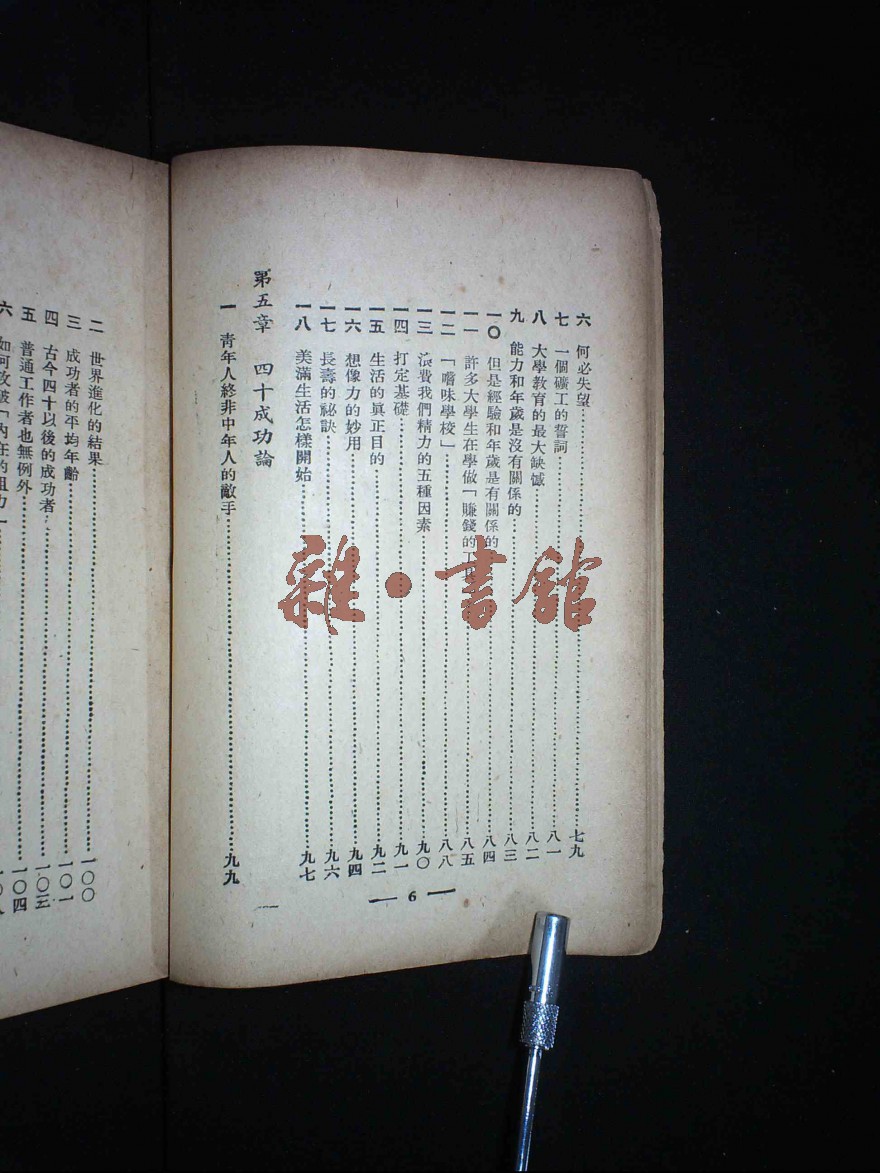 六 何必失望 七九
七 一個礦工的誓詞 八一
八 大學教育的最大缺憾 八二
九 能力和年歲是沒有關係的 八三
一〇 但是經驗和年歲是有關係的 八四
一一 許多大學生在學做「賺錢的 八五
一二 「嚐味學校」 八八
一三 浪費我們精力的五種因素 九〇
一四 打定基礎 九一
一五 生活的眞正目的 九二
一六 想像力的妙用 九四
一七 長壽的祕訣 九六
一八 美滿生活怎樣開始 九七
第五章 四十成功論
一 青年人終非中年人的敵手 九九
6
二 世界進化的結果 一〇〇
三 成功者的平均年齡 一〇一
四 古今四十以後的成功者 一〇三
五 普通工作者也無例外 一〇四
六 如何攻破「內在的阻力
雜·書館